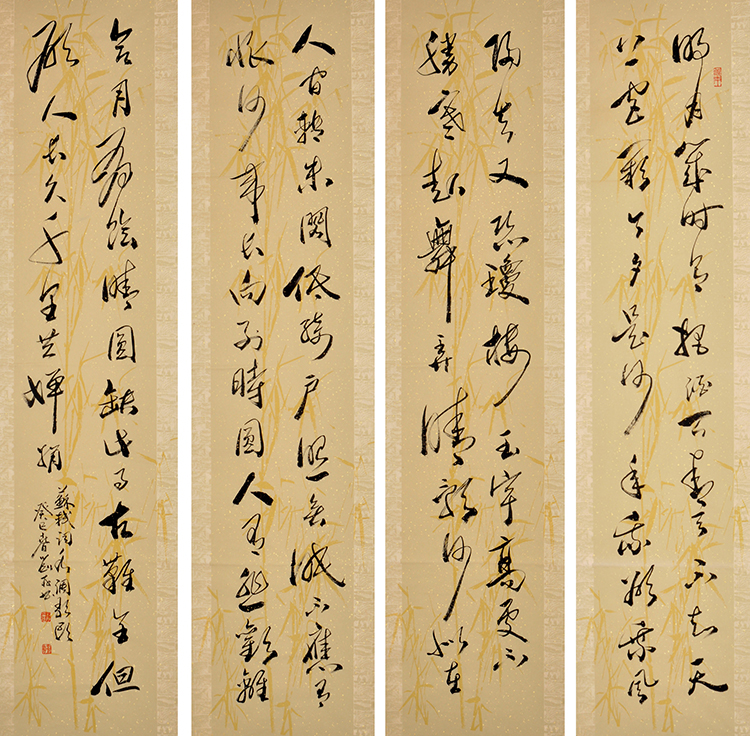 明月幾时有把酒问青天不知天
上宫阙今夕是何年我欲乘風
歸去又恐瓊樓玉宇高處不
勝寒起舞弄清影何似在
人间转朱閣低绮户照無眠不應有
恨何事长向别時圓人有悲歡離
合月有陰晴圓缺此事古難全但
願人长久千里共嬋娟
蘇軾詞水調歌頭
癸巳春